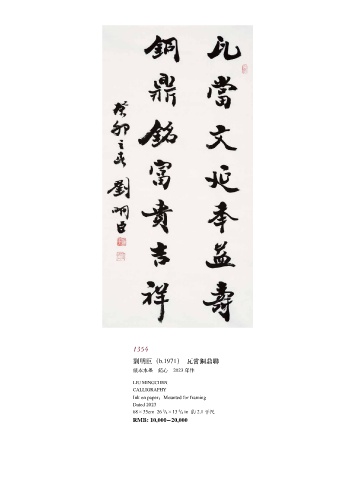 瓦當文延年益壽
銅鼎銘富貴吉祥
癸卯之春 劉明臣
1354
劉明臣 (b.1971) 瓦當銅鼎聯
紙本水墨 鏡心 2023年作
LIU MINGCHEN
CALLIGRAPHY
Ink on paper; Mounted for framing
Dated 2023
RMB: 10,000—20,000